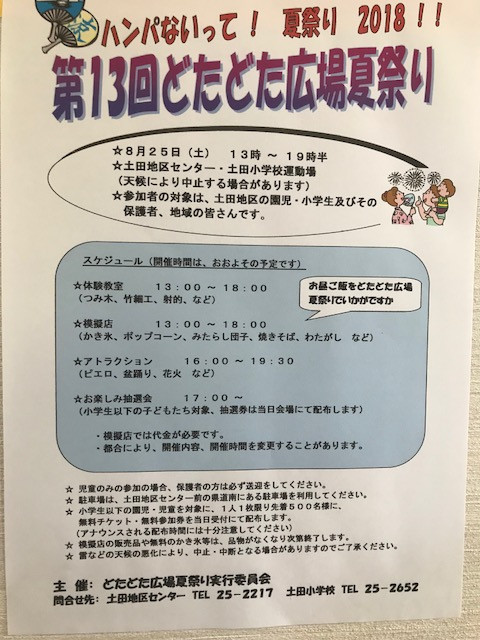 ハンパないって！ 夏祭り 2018！！
第13回どたどた広場夏祭り
☆８月２５日（土） １３時 ～ １９時半
☆土田地区センター・土田小学校運動場
（天候により中止する場合があります）
☆参加者の対象は、土田地区の園児・小学生及びその
保護者、地域の皆さんです。
スケジュール（開催時間は、おおよその予定です）
☆体験教室 １３：００ ～ １８：００
（つみ木、竹細工、射的、など）
お昼ご飯をどたどた広場
夏祭りでいかがですか
☆模擬店 １３：００ ～ １８：００
（かき氷、ポップコーン、みたらし団子、焼きそば、わたがし など）
☆アトラクション １６：００ ～ １９：３０
（ピエロ、盆踊り、花火 など）
☆お楽しみ抽選会 １７：００ ～
（小学生以下の子どもたち対象、抽選券は当日会場にて配布します）
・模擬店では代金が必要です。
・都合により、開催内容、開催時間を変更することがあります。
☆ 児童のみの参加の場合、保護者の方は必ず送迎をしてください。
☆ 駐車場は、土田地区センター前の県道南にある駐車場を利用してください。
☆ 小学生以下の園児・児童を対象に、１人１枚限り先着５００名様に、
無料チケット・無料参加券を当日受付にて配布します。
（アナウンスされる配布時間には十分注意してください）
☆ 模擬店の販売品や無料のかき氷等は、品物がなくなり次第終了します。
☆ 雷などの天候の悪化により、中止・中断となる場合がありますのでご了承ください。
主 催： どたどた広場夏祭り実行委員会
問合せ先： 土田地区センター TEL 25-2217 土田小学校 TEL 25-2652